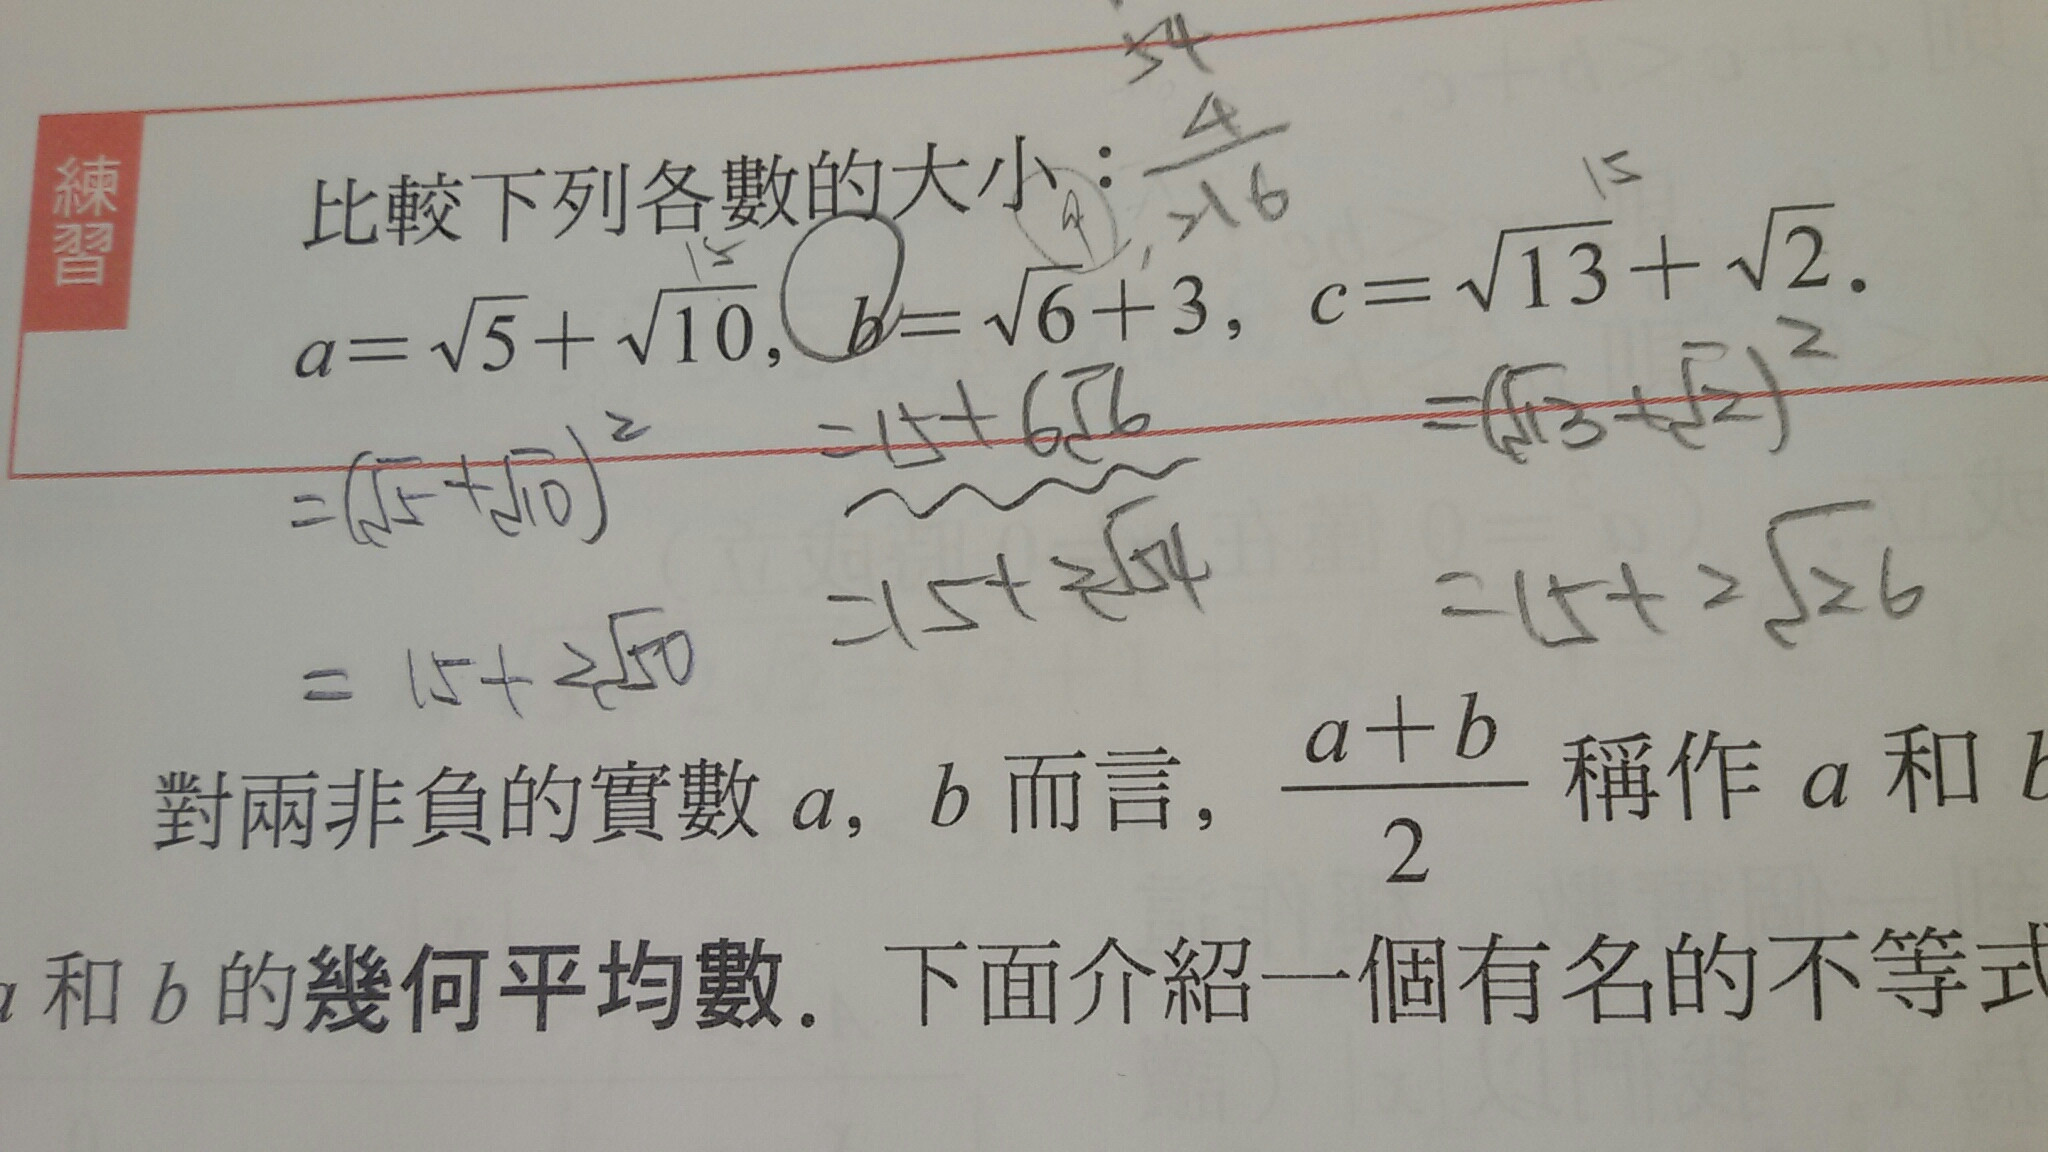 54
4
216
練習
比較下列各數的大小：
15
15
a=√5+√10, b=√6+3, c=√13+√2.
=(√5+√10)² =15+6√6 =(√13+√2)²
=15+2√50 =15+2√54 =15+2√26
對兩非負的實數 a, b 而言, (a+b)/2 稱作 a 和 b
a 和 b 的幾何平均數. 下面介紹一個有名的不等式